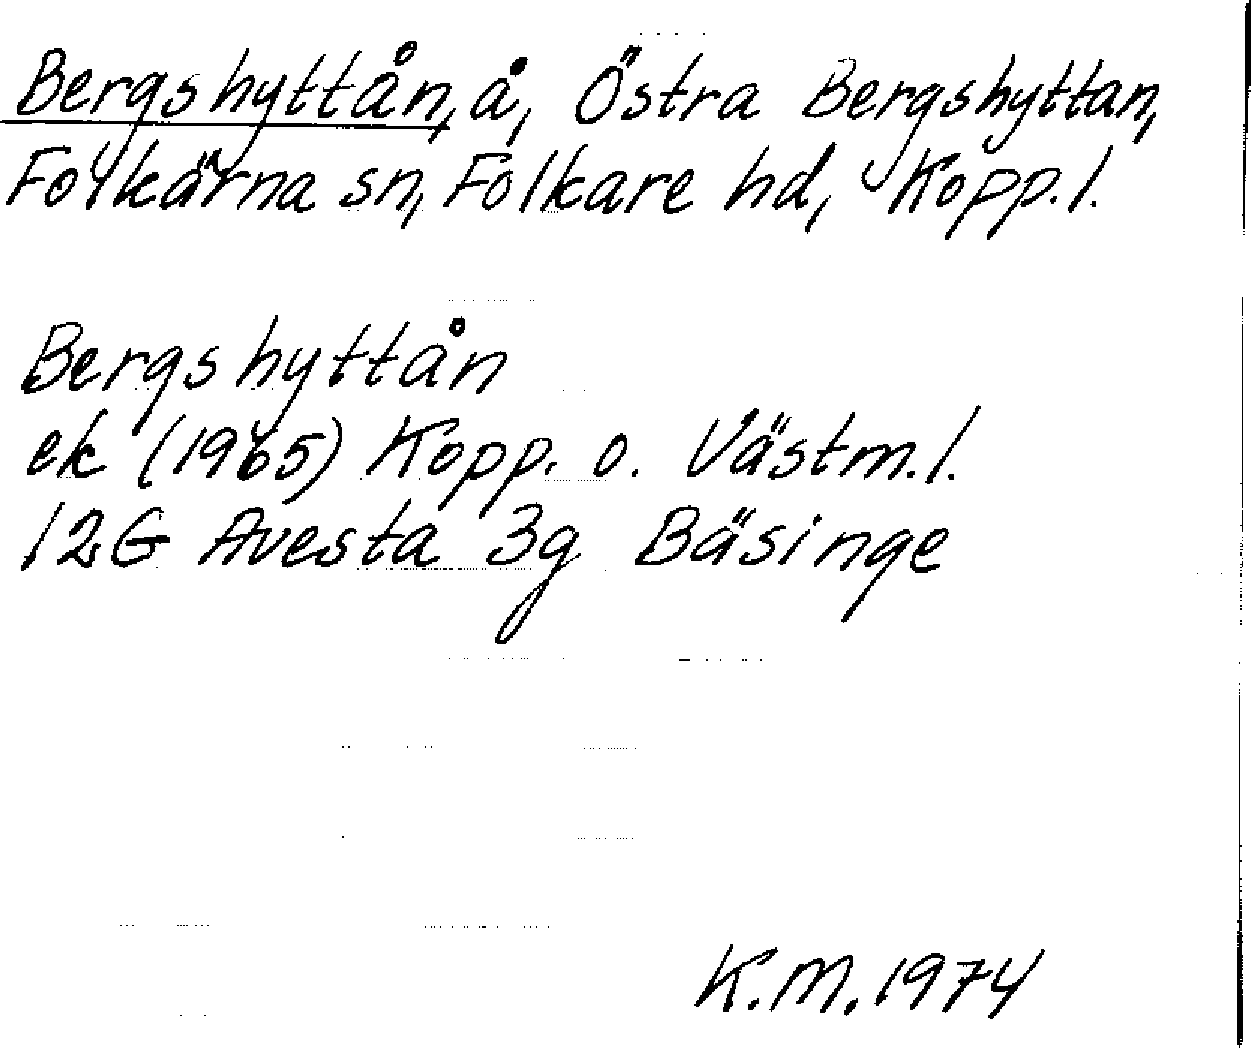 Bergshyttån, å, Östra Bergshyttan,
Folkärna sn, Folkare hd, Kopp. l.
Bergshyttån
ek (1965) Kopp. o. Västm. l.
12G Avesta 3g Bäsinge
K.M. 1974